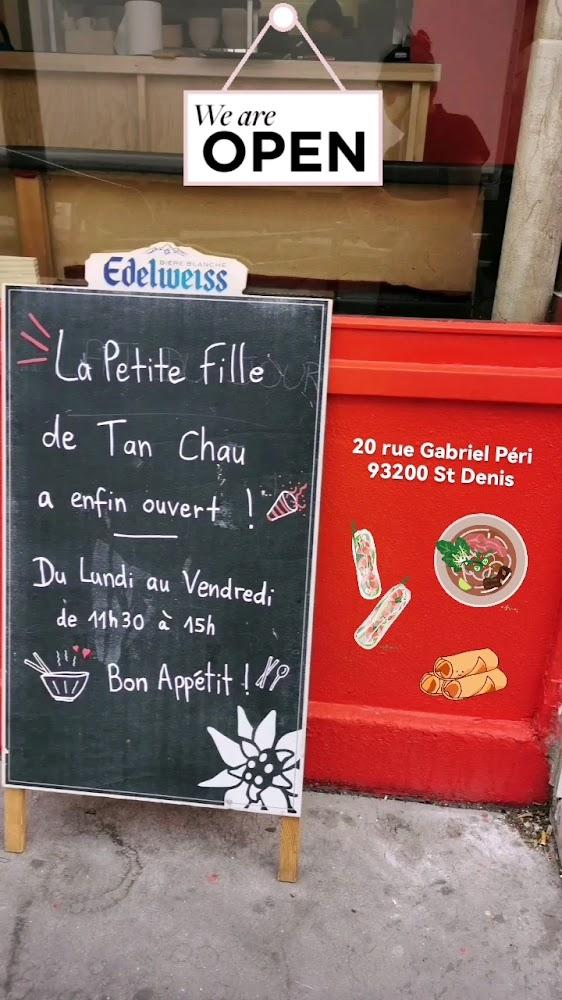 We are
OPEN
BIÈRE BLANCHE
Edelweiss
La Petite Fille
de Tan Chau
a enfin ouvert !
Du Lundi au Vendredi
de 11h30 à 15h
Bon Appétit !
20 rue Gabriel Péri
93200 St Denis